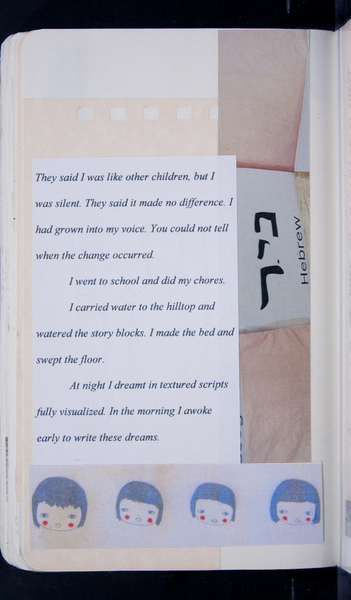 They said I was like other children, but I
was silent. They said it made no difference. I
had grown into my voice. You could not tell
when the change occurred.
I went to school and did my chores.
I carried water to the hilltop and
watered the story blocks. I made the bed and
swept the floor.
At night I dreamt in textured scripts
fully visualized. In the morning I awoke
early to write these dreams.
Hebrew